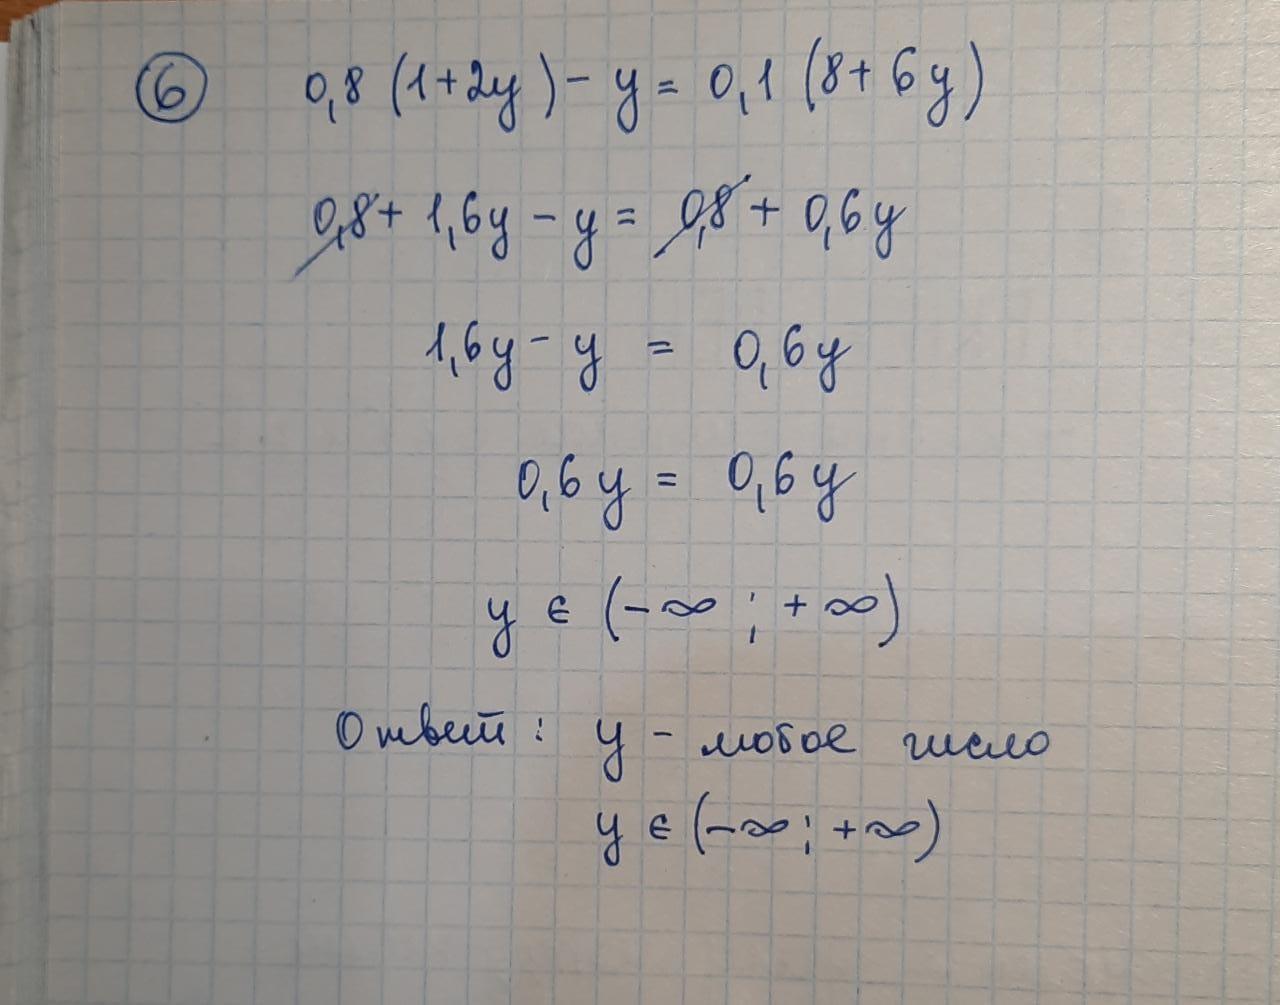 6 0,8 (1+2y) - y = 0,1 (8 + 6y)
0,8 + 1,6y - y = 0,8 + 0,6y
1,6y - y = 0,6y
0,6y = 0,6y
y ∈ (-∞ ; +∞)
Ответ: y - любое число
y ∈ (-∞ ; +∞)